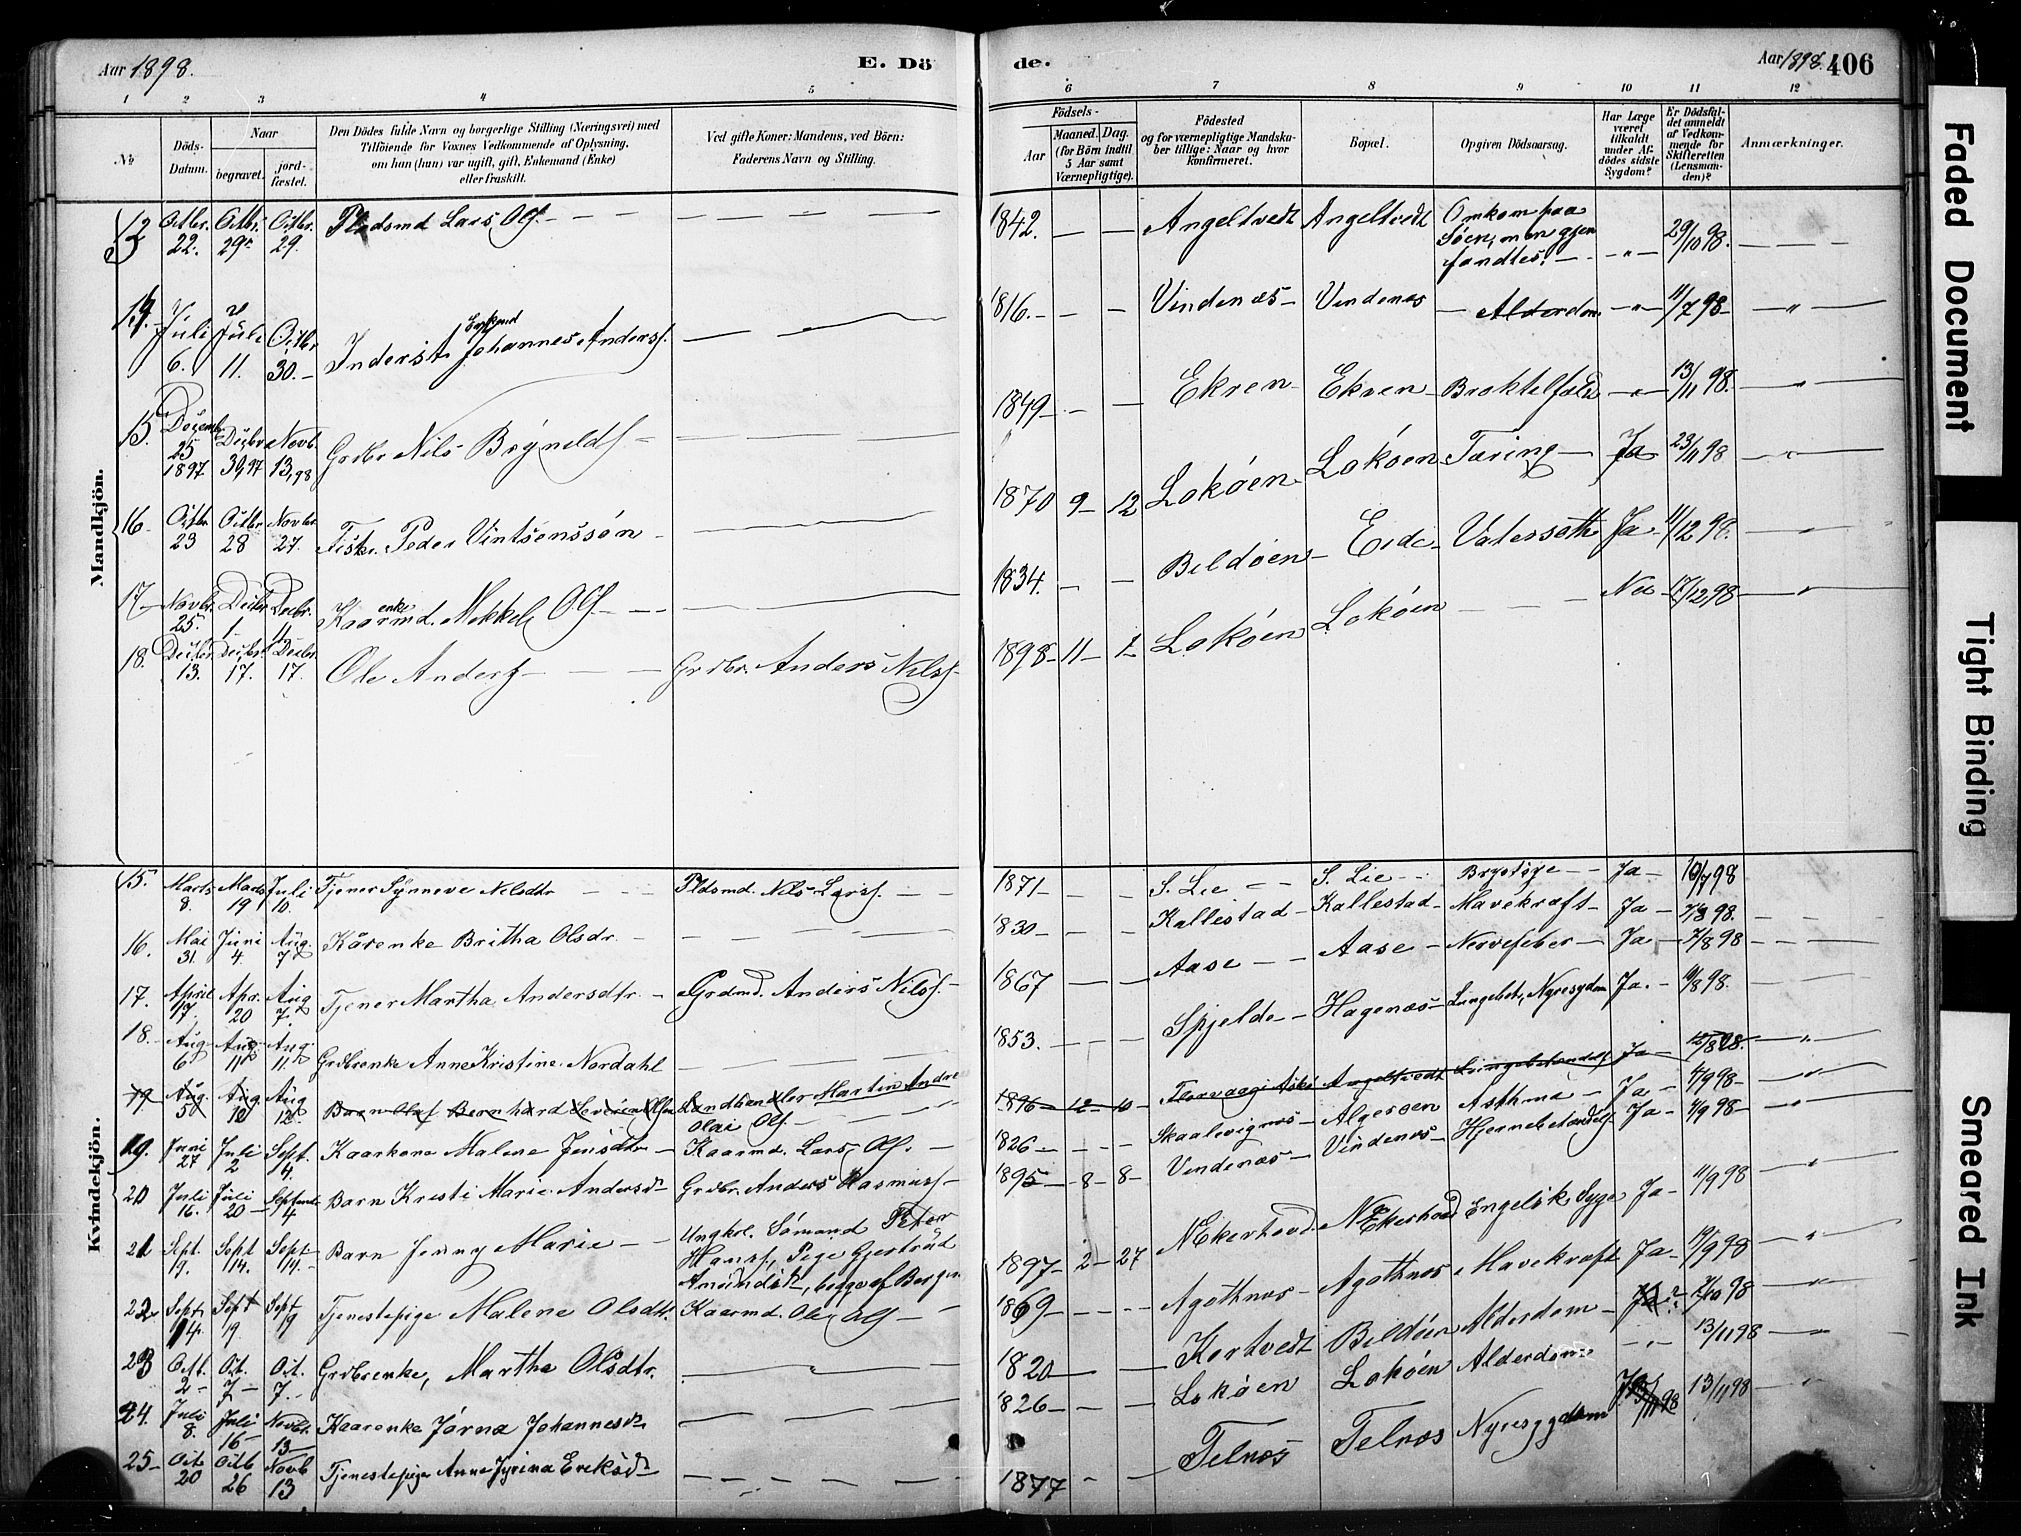 Aar 1898.
E. Dö
de.
Aar 1898. 406
1 2 3 4 5 6 7 8 9 10 11 12
No
Döds-
Datum.
Naar
begravet.
jord-
fæstet.
Den Dödes fulde Navn og borgerlige Stilling (Næringsvei) med
Tilföiende for Voxnes Vedkommende af Oplysning,
om han (hun) var ugift, gift, Enkemand (Enke)
eller fraskilt.
Ved gifte Koner: Mandens, ved Börn:
Faderens Navn og Stilling.
Födsels-
Aar
Maaned. Dag.
(for Börn indtil
5 Aar samt
Værnepligtige).
Födested
og for værnepligtige Mandska-
ber tillige: Naar og hvor
Konfirmeret.
Bopæl.
Opgiven Dödsaarsag.
Har Læge
været
tilkaldt
under Af-
dödes sidste
Sygdom?
Er Dödsfal-
det anmeldt
af Vedkom-
mende for
Skifteretten
(Lensman-
den)?
Anmærkninger.
Mandkjön.
13 Octbr. 22. Octbr. 29. Octbr. 29. Pladsmd Lars Ols. 1842. Angeltvedt Angeltvedt Omkom paa
Söen, men gjen
fandtes. 29/10 98.
14. Juli 6. Juli 11. Octbr 30. Inderst Enkmd Johannes Anders. 1816. Vindenæs Vindenæs Alderdom 11/7 98
15. Decembr 25 1897 Decbr 30,97 Novb. 13,98 Grdbr Nils Brynilds 1849 Ekren Ekren Broktilfælde 13/11 98.
16 Octbr 23 Octbr 28 Novbr 27. Fisker Peder Vintsenssøn 1870 9 12 Lokøen Lokøen Tæring Ja 23/11 98
17 Novbr. 25. Decbr 1. Decbr. 11 Kaarenkemd. Mikkel Ols. 1834. Bildøen Eide Vatersott Ja 11/12 98.
18. Decbr. 13. Decbr 17. Decbr. 17. Ole Anders Grdbr. Anders Nils. 1898 11 1 Lokøen Lokøen Nei 17/12 98
Kvindekjön.
15. Marts 8. Marts 19 Juli 10. Tjener Synneve Nilsdtr Pldsmd. Nils Lars. 1871 S. Lie S. Lie Brystsyge Ja 10/7 98
16. Mai 31 Juni 4. Aug. 7 Kårenke Britha Olsdr. 1830 Kallestad Kallestad Mavekræft Ja 7/8 98.
17. April 17. Apr. 20 Aug 7. Tjener Martha Andersdtr. Grdmd. Anders Nils. 1867 Aase Aase Nervefeber Ja 7/8 98
18. Aug 6 Aug 11 Aug. 11. Grdbrenke Anne Kristine Nordahl 1853. Spjelde Hagenæs Lungebet., Nyresygdom Ja. 11/8 98.
19 Aug. 5 Aug 12 Aug 12. Barn Olaf Bernhard Severin Olsen Landhandler Martin Andr
Olai Ols. 1896 12 10 Florvaag i Askø Angeltvedt Lungebetændelse Ja 12/8 98.
19. Juni 27 Juli 2 Sept. 4. Kaarkone Malene Jensdtr Kaarmd. Lars Ols. 1826 Skaalevignæs Algerøen Asthma Ja 4/9 98
20 Juli 16. Juli 20 Septemb 4 Barn Kristi Marie Andersdr Grdbr. Anders Rasmus 1895 8 8 Vindenæs Vindenæs Hjernebetændelse Ja 4/9 98
21 Sept. 9. Sept 14. Sept 14. Barn Jenny Marie Ungkrl. Sømand Peter
Hans., Pige Gjertrud
Amundsdtr, begge af Bergen 1897 2 27 N Ekerhovd N Ekerhovd Engelsk Syge Ja 11/9 98
22 Sept. 14. Sept 19. Sept 19 Tjenestepige Malene Olsdtr. Kaarmd. Ole Ols 1869 Agothnæs Agothnæs Mavekræft Ja 19/9 98
23 Oct. 2 Oct. 7 Oct. 7. Grdbrenke, Martha Olsdtr. 1820 Kortvedt Bildøen Alderdom 7/10 98
24. Juli 8. Juli 16 Novbr. 13 Kaarenke Jørna Johannesdr 1826 Lokøen Lokøen Alderdom 13/11 98
25 Oct 20 Octb 26 Novb 13 Tjenestepige Anne Jyrina Eriksdr 1877 Telnæs Telnæs Nyresygdom Ja 13/11 98
Faded Document
Tight Binding
Smeared Ink